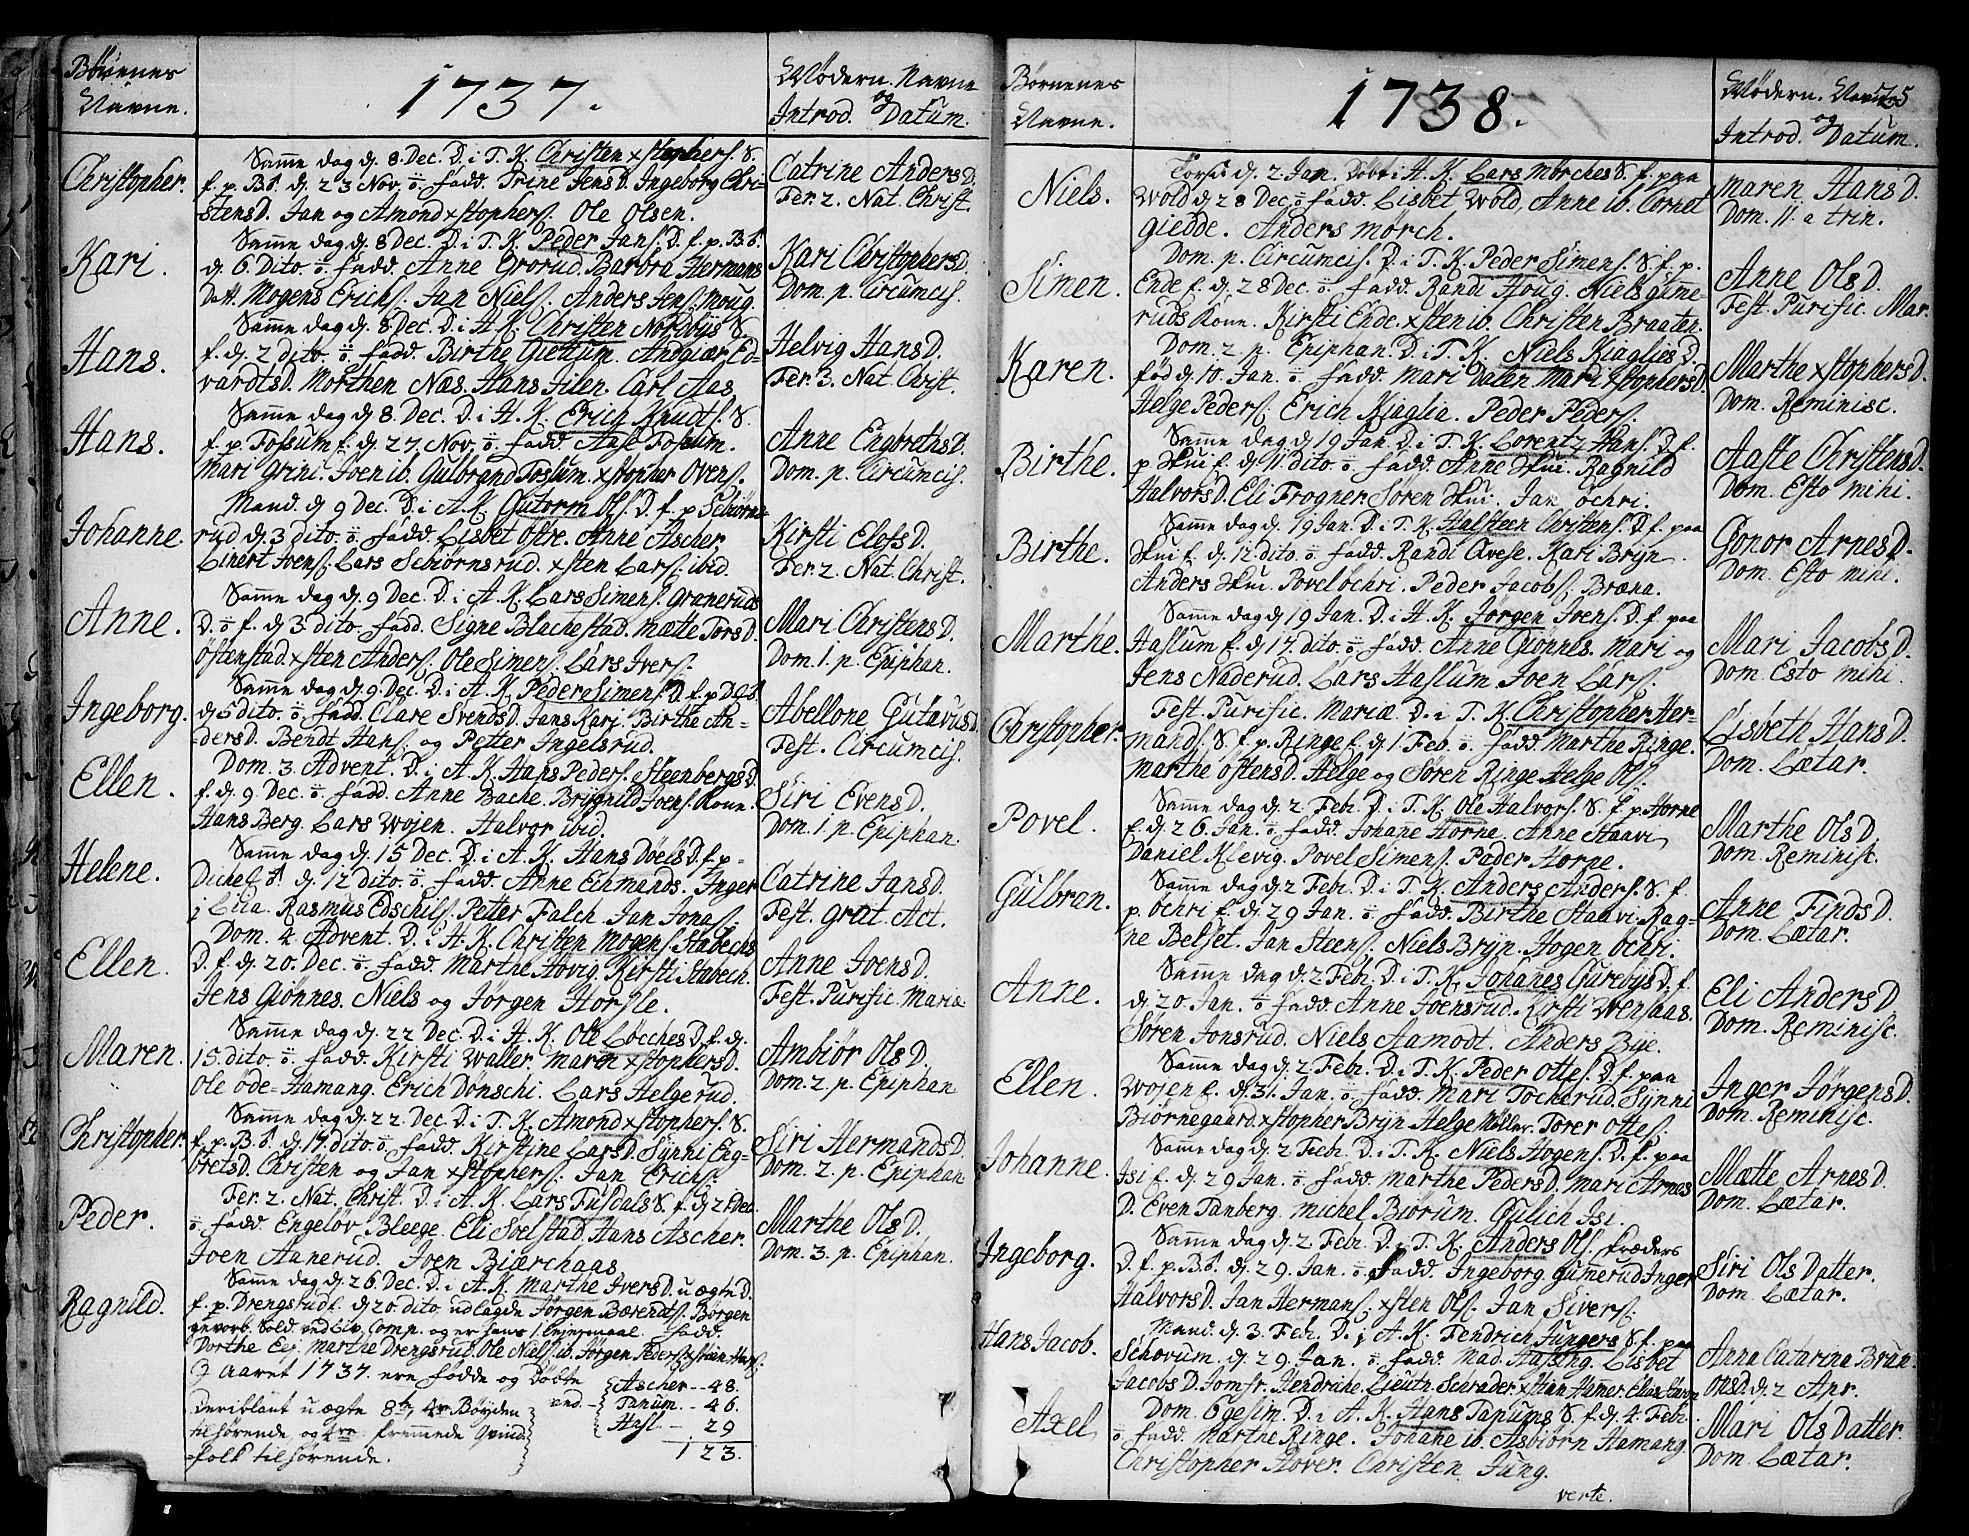 Børnenes
Navne.
1737.
Mødern. Navne
og
Introd. Datum.
Christopher.
Samme dag d. 8. Dec. D. i T. K. Christen xstophers. S.
f. p. Bs. d. 23 Nov. ō fadd. Trine Jens D. Ingeborg Chri-
stens D. Jan og Amond xstophers. Ole Olsen.
Catrine Anders D.
Fer. 2. Nat. Christ.
Kari.
Samme dag d. 8 Dec. D. i T. K. Peder Jans. D. f. p. Bs.
d. 6. Dito. ō. fadd. Anne Grorud. Barbra Hermans
Datt. Mogens Erichs. Jan Niels. Anders Jens. Moug.
Kari Christophers D.
Dom. p. Circumcis.
Hans.
Samme dag d. 8 Dec. D. i H. K. Christen Nordbys S.
f. d. 2 dito. ō fadd. Birthe Giettum. Andgiær Ed-
vardts D. Morthen Næs. Hans Jilen. Carl Aas.
Helvig Hans D.
Fer. 3. Nat. Christ.
Hans.
Samme dag d. 8. Dec. D. i H. K. Erich Knudts. S.
f. p. Fossum f. d. 27 Nov. ō fadd. Aase Fossum.
Mari Grini. Joen ib. Gulbrand Fossum xstopher Ovens.
Anne Engbreths D.
Dom. p. Circumcis.
Johanne.
Mand. d. 9 Dec. D. i A. K. Gutorm Ols. D. f. p Schiørns-
rud d. 3 dito. ō fadd. Lisbet Ostre. Anne Ascher
Linert Joens. Lars Schiørnsrud. xsten Lars. ibid.
Kirsti Elefs D.
Fer. 2. Nat. Christ.
Anne.
Samme dag d. 9 Dec. D. i A. K. Lars Simens. Graneruds
D. ō f. d. 3. dito. fadd. Signe Blachestad. Mætte Tors D.
Østenstad. xsten Anders. Ole Simens. Lars Ivers.
Mari Christens D.
Dom. 1. p. Epiphan.
Ingeborg.
Samme dag d. 9 Dec. D. i A. K. Peder Simens D. f. p D.
d. 5 dito. ō fadd. Clare Svends D. Jans Kari. Birthe An-
ders D. Bendt Hans. og Petter Ingelsrud.
Abellone Gutavus D.
Fest. Circumcis.
Ellen.
Dom. 3. Advent. D. i A. K. Hans Peders. Steenbergs D.
f. d. 9 Dec. ō fadd. Anne Bache. Brygnild Joens. Kone.
Hans Berg. Lars Wojen. Halvor ibid.
Siri Evens D.
Dom. 1. p. Epiphan.
Helene.
Samme dag d. 15 Dec. D. i A. K. Hans Døels D. f. p-
d. 12 dito. ō fadd. Anne Einmands. Inger
i Liia. Rasmus Edschils. Petter Falch. Jan Jonas.
Catrine Jans D.
Fest. grat. Act.
Ellen.
Dom. 4. Advent. D. i H. K. Christen Mogens. Stabechs
D. f. d. 20. Dec. ō fadd. Marthe Hovig. Kirsti Stabech.
Jens Giønnes. Niels og Jørgen Horsle.
Anne Joens D.
Fest. Purific. Mariæ
Maren.
Samme dag d. 22 Dec. D. i H. K. Ole Løcches D. f. d.
15. dito. ō fadd. Kirsti Waller. Maren xstophers D.
Ole Øde-Hamang. Erich Donschi. Lars Helgerud.
Ambiør Ols D.
Dom. 2 p. Epiphan
Christopher.
Samme dag d. 22 Dec. D. i T. K. Amond xstophers. S.
f. p. B. s. d. 17. dito. ō fadd. Kirstine Lars D. Synni Eng-
brets D. Christen og Jan xstophers. Jan Erichs.
Siri Hermands D.
Dom. 2. p. Epiphan
Peder.
Fer. 2. Nat. Christ. D. i A. K. Lars Fusdals S. f. d. 21 Dec.
ō fadd. Engeløv Bleege. Eli Soelstad. Hans Ascher.
Joen Aanerud. Joen Biærchaas.
Marthe Ols D.
Dom. 3. p. Epiphan.
Ragnild.
Samme dag d. 26 Dec. D. i A. K. Marthe Ivers D. uægte D.
f. p. Drengsrud f. d. 20 dito udlagde Jørgen Bærendts. Borgen
gevorb. Sold. ved Liv. Comp. og er hans 1. Leyermaal. fadd.
Dorthe Eeg. Marthe Drengsrud. Ole Niels. ib. Jørgen Peders.
J Aaret 1737. ere fødde og Døbte
Deriblant uægte 8te 4re Bøyden
tilhørende og 4re fremmede Qvind
folk tilhørende.
ved -
Ascher -- 48.
Tanum -- 46.
Hasl. -- 29
123.
Børnenes
Navne.
1738.
Mødern. Navne
og
Introd. Datum.
Niels.
Torsd. d. 2 Jan. Døbt i H. K. Lars Mørches S. f. paa
Wold d. 28 Dec. ō fadd. Lisbet Wold, Anne ib. Cornet
Giedde. Anders Mørch.
Maren Hans D.
Dom. 11. a trin.
Simen.
Dom. p. Circumcis. D. i T. K. Peder Simens. S. f. p.
Ende f. d. 28 Dec. ō. fadd. Randi Houg. Niels Gume-
ruds Kone. Kirsti Ende. xsten ib. Christen Braaten.
Anne Ols D.
Fest. Purific. Mar.
Karen.
Dom. 2. p. Epiphan. D. i T. K. Niels Kiaglies D.
fød d. 10. Jan. ō fadd. Mari Dalen Mari xstophers D.
Helge Peders. Erich Kiaglia. Peder Peders.
Marthe xstophers D.
Dom. Reminisc.
Birthe.
Samme dag d. 19 Jan. D. i T. K. Lorentz Hans. D. f.
p Skui f. d. 11. dito. ō. fadd. Anne Skui. Ragnild
Halvors D. Eli Frogner Søren Skui. Jan Øchri.
Aaste Christens D.
Dom. Esto mihi.
Birthe.
Samme dag d. 19 Jan. D. i T. K. Halsteen Christens. D. f. paa
Skui f. d. 12. dito. ō. fadd. Randi Qvese. Kari Bryn
Anders Skui. Povel Øchri. Peder Jacobs. Bræna.
Gonor Arnes D.
Dom. Esto mihi.
Marthe.
Samme dag d. 19 Jan. D. i H. K. Jørgen Joens. D. f. paa
Haslum f. d. 17. dito. ō fadd. Anne Giønnes. Mari og
Jens Naderud. Lars Haslum. Joen Lars.
Mari Jacobs D.
Dom Esto mihi.
Christopher.
Fest. Purific. Mariæ D. i T. K. Christopher Her-
mands. S. f. p. Ringe f. d. 1. Feb. ō. fadd. Marthe Ringe.
Marthe Østens D. Helge og Søren Ringe. Helge Ols.
Lisbeth Hans D.
Dom. Lætar.
Povel.
Samme dag d. 2. Febr. D. i T. K. Ole Halvors. S. f. p Horne
f. d. 26. Jan. ō. fadd. Johanne Horne. Anne Haavi
Daniel Klevig. Povel Simens. Peder Horne.
Marthe Ols D.
Dom. Reminisc.
Gulbran.
Samme dag d. 2 Febr. D. i T. K. Anders Anders. S. f.
p. Øchri f. d. 29 Jan. ō. fadd. Birthe Staavi. Rag-
ne Belset. Jan Steens. Niels Bryn. Hogen Øchri.
Anne Finds D.
Dom. Lætar.
Anne.
Samme dag d. 2 Febr. D. i T. K. Johanes Gurebys D. f.
d. 20 Jan. ō fadd. Anne Joensrud. Kirsti Wensaas.
Søren Jonsrud. Niels Aamodt. Anders Bye.
Eli Anders D
Dom. Reminisc.
Ellen.
Samme dag d. 2 Febr. D. i T. K. Peder Ottes. D. f. paa
Wojen f. d. 31. Jan. ō fadd. Mari Tocherud. Synni
Biørnegaard xstopher Bryn Helge Møller. Torer Ottes.
Inger Jørgens D.
Dom. Reminisc.
Johanne.
Samme dag d. 2 Febr. D. i T. K. Niels Hogens. D. f. paa
Isi f. d. 29 Jan. ō fadd. Marthe Peders D. Mari Arnes
D. Even Tanberg. Michel Biørum. Gulich Isi.
Mætte Arnes D
Dom. Lætar.
Ingeborg.
Samme dag d. 2. Febr. D. i T. K. Anders Ols. skræders
D. f. p. Bs. d. 29. Jan. ō fadd. Ingeborg Gumerud Inger
Halvors D. Jan Hermans. xsten Ols. Jan Sivers.
Siri Ols Datter.
Dom. Lætar.
Hans Jacob.
Mand. d. 3. Feb. D. i A. K. Fendrich Jungers S. f. paa
Schovum. d. 29. Jan. ō fadd. Mad. Hassing. Lisbet
Jacobs D. Jomfr. Hendriche. Lieutn. Schrader. xstian Hamer.
Anna Catarina Brun
Ols D. d. 2 Apr.
Axel
Dom. 6gesim. D. i A. K. Hans Tanums S. f. d. 4. Febr.
ō fadd. Marthe Ringe. Johane ib. Asbiørn Hamang.
Christopher Hover. Christen Jung.
Mari Ols Datter.
Dom. Lætar.
verte.